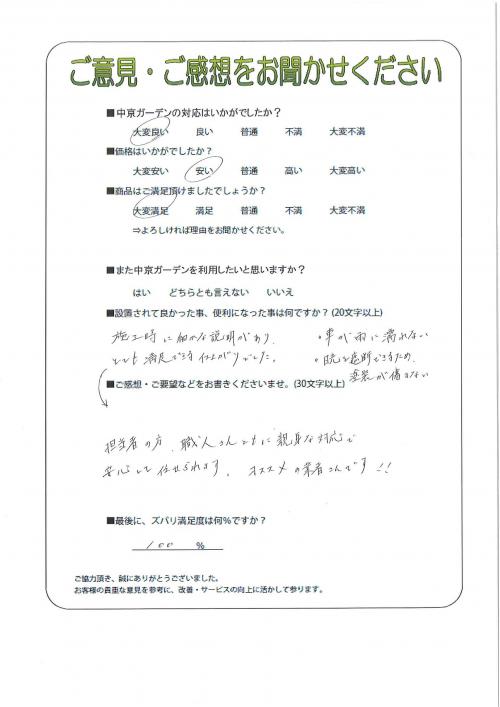 ご意見・ご感想をお聞かせください
■中京ガーデンの対応はいかがでしたか？
大変良い 良い 普通 不満 大変不満
■価格はいかがでしたか？
大変安い 安い 普通 高い 大変高い
■商品はご満足頂けましたでしょうか？
大変満足 満足 普通 不満 大変不満
⇒よろしければ理由をお聞かせください。
■また中京ガーデンを利用したいと思いますか？
はい どちらとも言えない いいえ
■設置されて良かった事、便利になった事は何ですか？(20文字以上)
施工時に細かな説明があり、
とても満足できる仕上がりでした。
・車が雨に濡れない
・日光を遮断できるため、
塗装が傷まない
■ご感想・ご要望などをお書きくださいませ。(30文字以上)
担当者の方、職人さんともに親身な対応で
安心して任せられます。オススメの業者さんです!!
■最後に、ズバリ満足度は何%ですか？
100 %
ご協力頂き、誠にありがとうございました。
お客様の貴重な意見を参考に、改善・サービスの向上に活かして参ります。